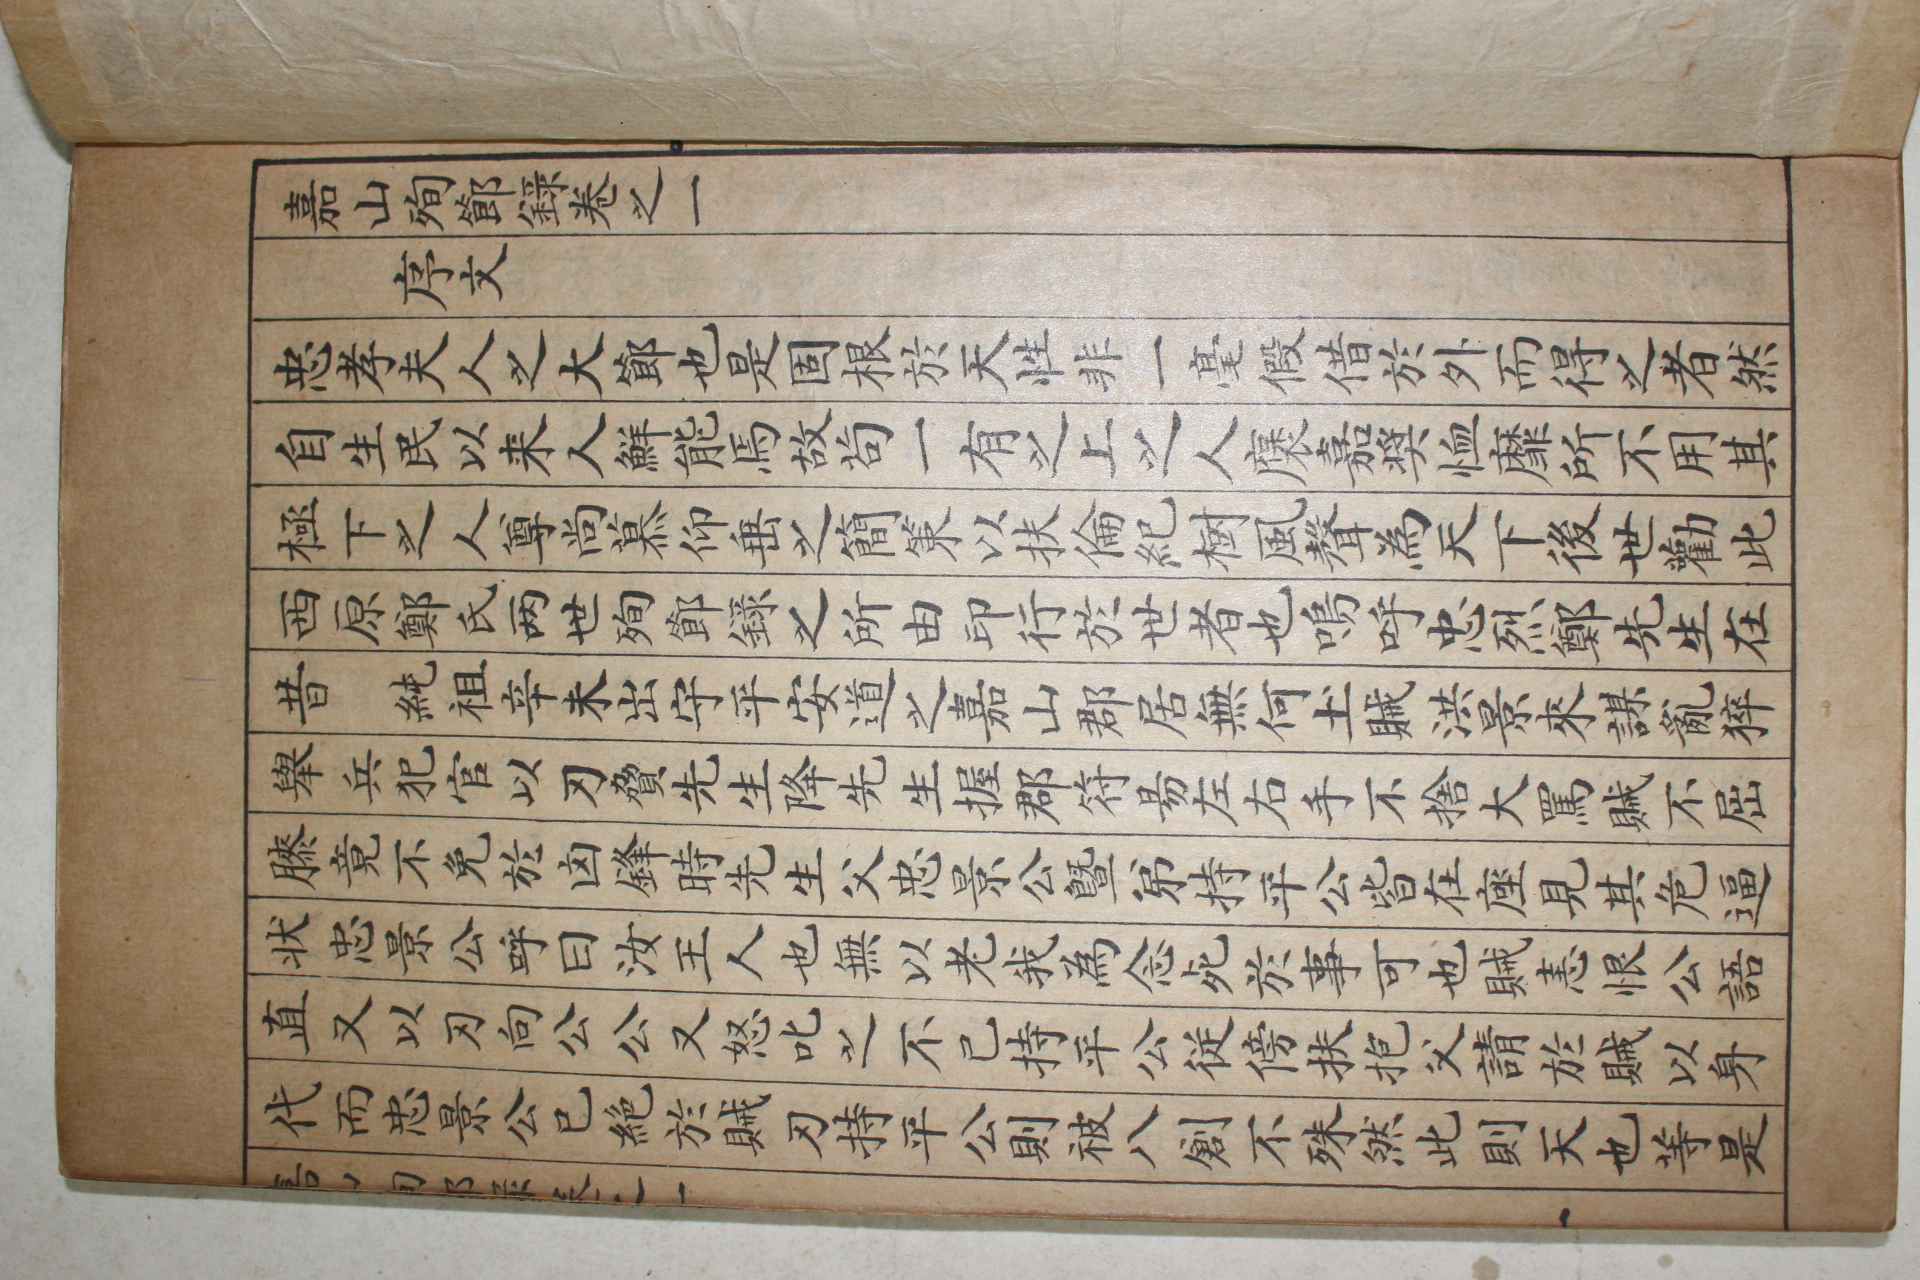 嘉山殉節錄卷之一
序文
忠孝夫人之大節也是固根於天性非一毫假借於外而得之者然
自生民以来人鮮能焉故苟一有之上之人褒嘉奬恤靡所不用其
極下之人尊尚慕仰垂之簡策以扶倫紀樹風聲為天下後世勸此
西原鄭氏兩世殉節錄之所由印行於世者也嗚呼忠烈鄭先生在
昔 純祖辛未出守平安道之嘉山郡居無何土賊洪景來謀亂猝
舉兵犯官以刃脅先生降先生握郡符易左右手不捨大罵賊不屈
膝竟不免於凶鋒時先生父忠景公曁弟持平公皆在座見其危逼
狀忠景公呼曰汝王人也無以老我為念死於事可也賊恚恨公語
直又以刃向公公又怒叱之不已持平公從傍扶抱父請於賊以身
代而忠景公已絶於賊刃持平公則被八創不殊然此則天也等是
嘉山殉節錄卷之一 一